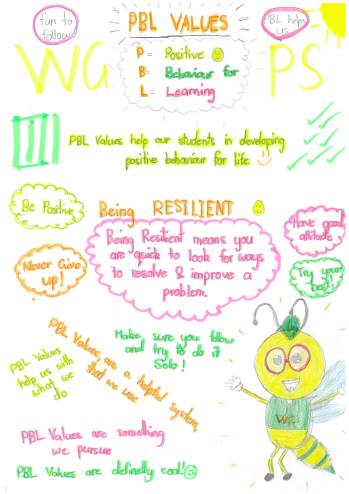 fun to
follow
PBL VALUES
PBL helps
us
WG
PS
P = Positive
B = Behaviour for
L = Learning
PBL Values help our students in developing
positive behaviour for life
Be Positive
Being RESILIENT
Have good
attitude
Never Give
up!
Being Resilient means you
are quick to look for ways
to resolve & improve a
problem.
Try your
best!
PBL Values
help us with
what we
do
PBL Values are a helpful system,
that we use
Make sure you follow
and try to do it
Solo!
WG
PBL Values are something
we pursue
PBL Values are definetly cool!